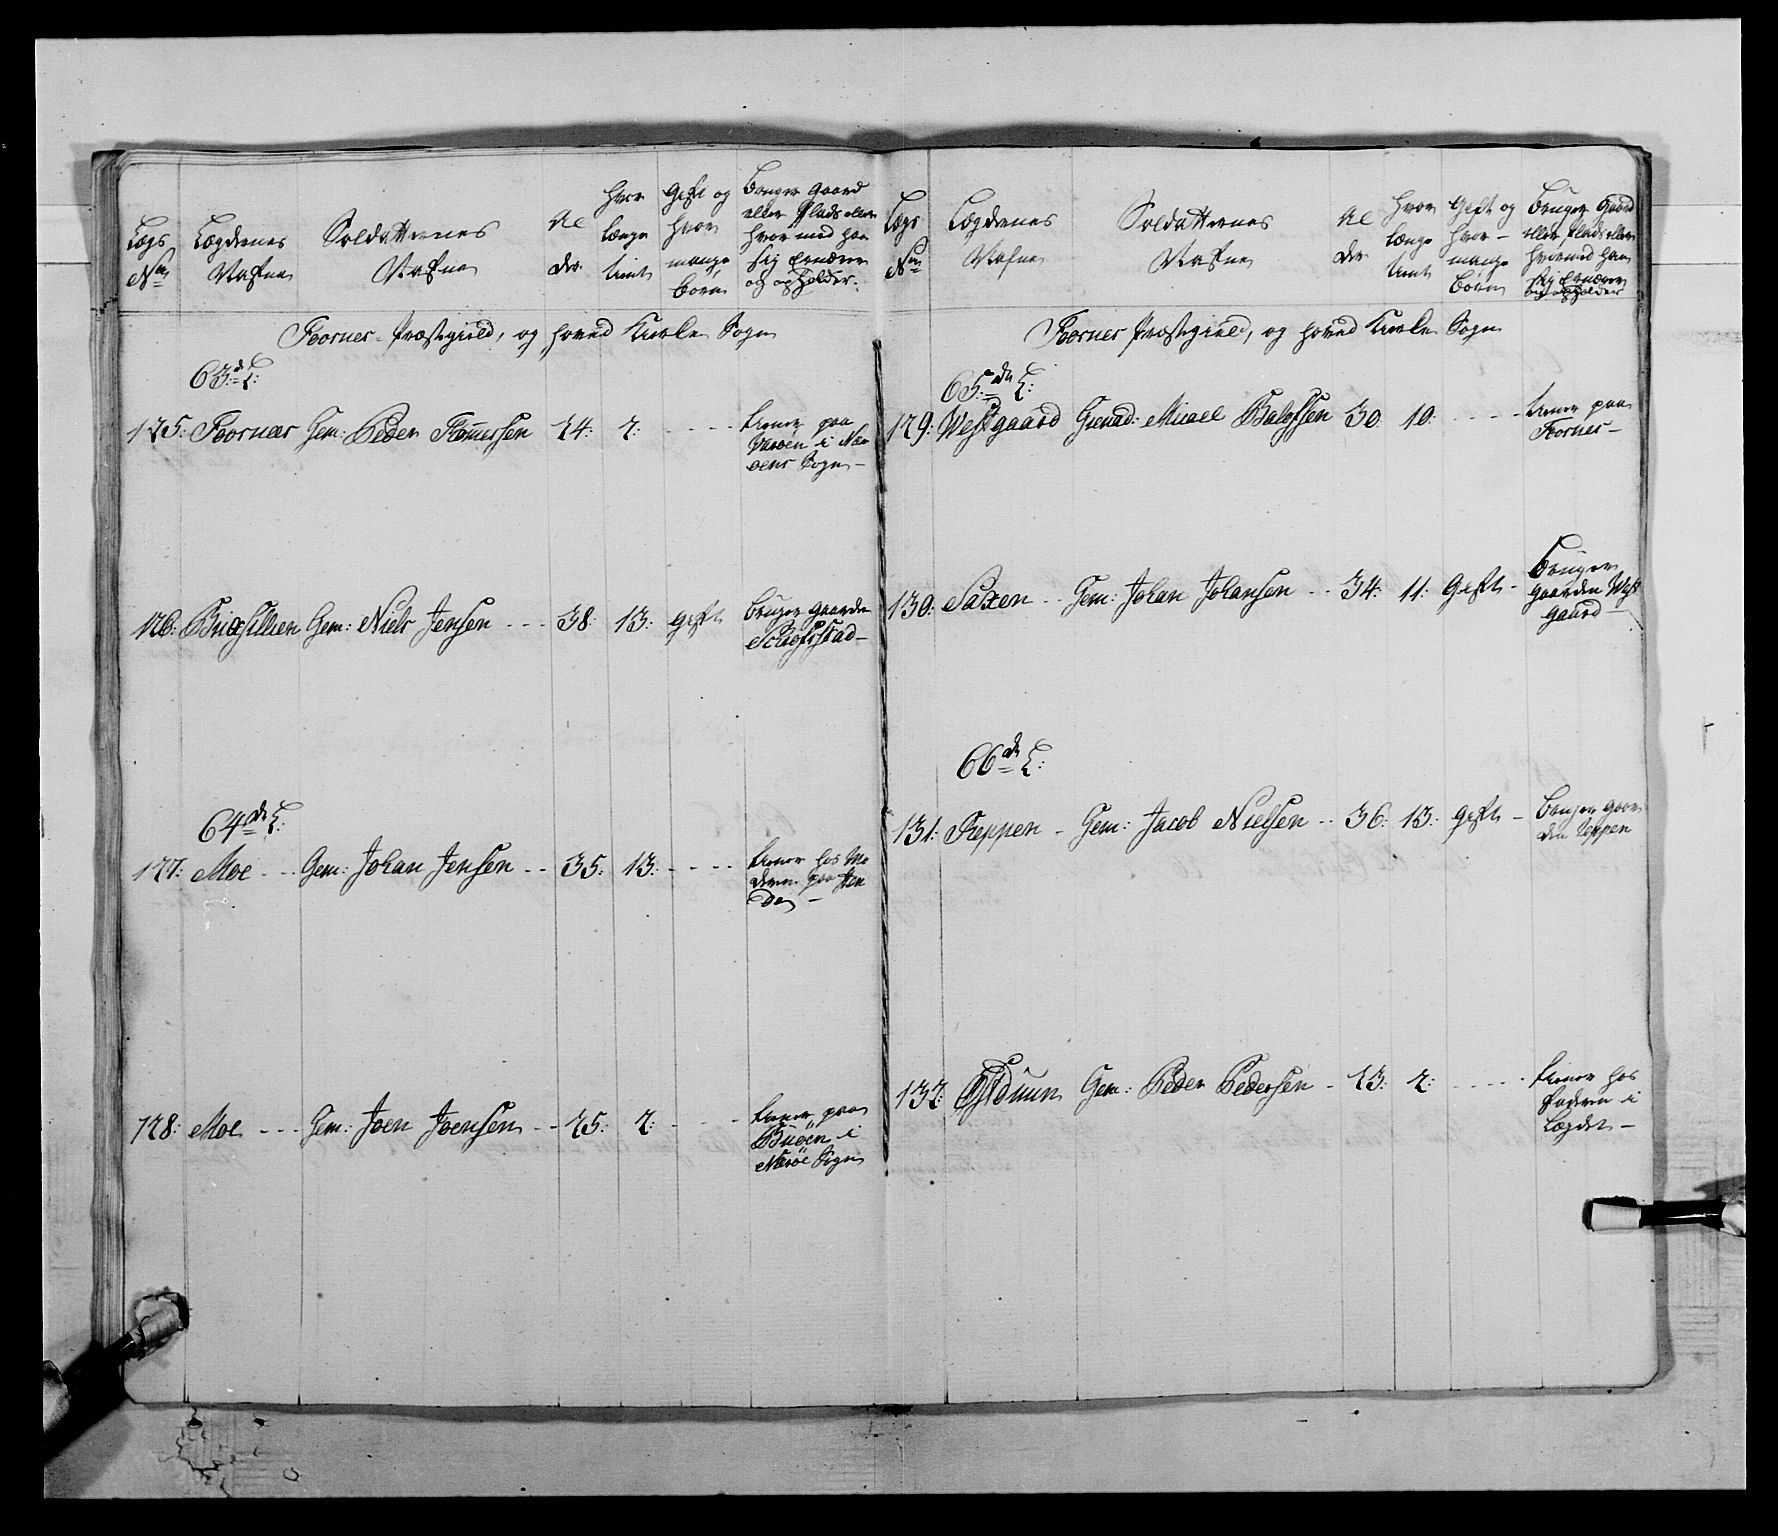 Lægs No
Lægdernes Nafne
Soldatternes Nafne
Al der
Hvor længe tient
Gift og hvor mange børn
Bruger Gaard eller Plads eller hvor med han sig Ernærer og opholder
Foornes Præstegield, og hoved Kircke Sogn
63de L:
125: Foornæs Gem: Peder Tommessen 24: 2: - - - - tiener paa Varøen i Nærøens Sogn -
126: Gem: Niels Jensen - - - 38: 13: gift Bruger gaarden
64de L:
127: Moe - - - Gem: Johan Jensen - - 35: 13: - - - - tiener hos Moderen paa
128: Moe - - - Gem: Joen Joensen - - 25: 2: - - - - tiener paa i Nærøe Sogn
Lægs No
Lægdernes Nafne
Soldatternes Nafne
Al der
Hvor længe tient
Gift og hvor - mange børn
Bruger Gaard eller Plads eller hvormed han sig Ernærer og opholder
Foornes Præstegield, og hoved Kircke Sogn
65de L:
129: Westgaard Grenad: 30 10: - - - - tiener paa Foornes -
130: Saxen - - Gem: Johan Johansen - - 34: 11: gift - Bruger gaarden Westgaard
66de L:
131: Teppen - Gem: Jacob Nielsen - - 36: 13: gift - Bruger gaarden Teppen
132: Gem: Peder Pedersen - 23: 2: - - - - tiener hos Faderen i Lægdet -